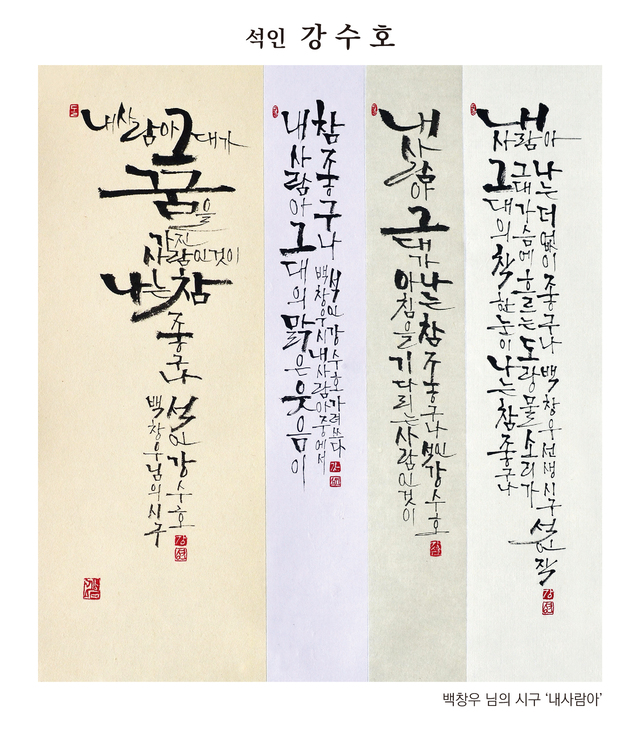 석인 강수호
내사람아 그대가
꿈을
가진
사람인것이
나는참
좋구나
석인 강수호
백창우님의 시구
내사람아 그대의 맑은 웃음이
참 좋구나
백창우 시 내사람아 중에서
석인 강수호 가려쓰다
내사람아
그대가
아침을 기다리는 사람인것이
나는 참 좋구나 석인 강수호
내사람아
그대의 착한 눈이 나는 참 좋구나
그대 가슴에 흐르는 도랑물 소리가
나는 더없이 좋구나 백창우 선생 시구 석인 작
백창우 님의 시구 ‘내사람아’